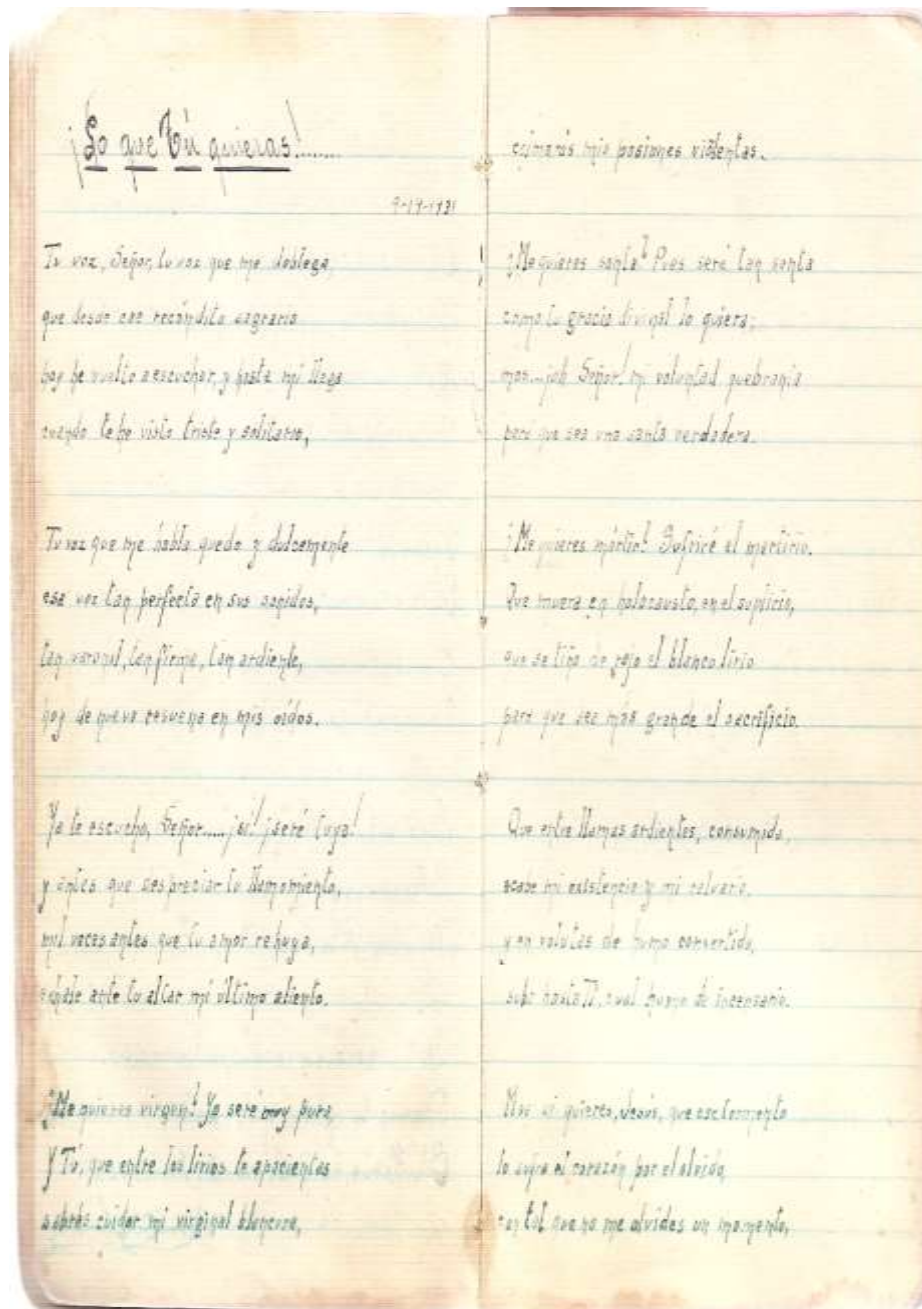 ¡Lo que Tú quieras!........
Tu voz, Señor, tu voz que me doblega
que desde ese recóndito sagrario
hoy he vuelto a escuchar, y hasta mi llega
cuando te he visto triste y solitario,
Tu voz que me habla quedo y dulcemente
esa voz tan perfecta en sus sonidos,
tan varonil, tan firme, tan ardiente,
hoy de nuevo resuena en mis oídos.
Ya te escucho, Señor.... ¡sí! ¡seré tuya!
y antes que despreciar tu llamamiento,
mil veces antes que tu amor rehuya,
exhale ante tu altar mi último aliento.
¿Me quieres virgen? Yo seré muy pura,
y Tú, que entre los lirios te apacientas
sabrás cuidar mi virginal blancura,
mis pasiones violentas.
¿Me quieres santa? Pues seré tan santa
como tu gracia divinal lo quiera;
mas...¡oh Señor! mi voluntad quebranta
para que sea una santa verdadera.
¿Me quieres mártir? Sufriré el martirio.
Que muera en holocausto, en el suplicio,
que se tiña de rojo el blanco lirio
para que sea más grande el sacrificio.
Que entre llamas ardientes, consumida,
acabe mi existencia y mi calvario,
y en volutas de humo convertida,
suba hasta Ti, cual humo de incensario.
Mas si quieres, Jesús, que ese tormento
lo sufra el corazón por el olvido,
con tal que no me olvides un momento,